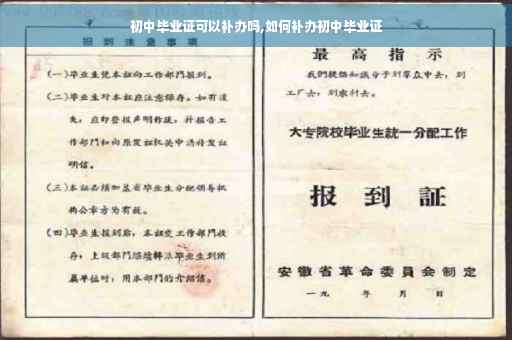 初中毕业证可以补办吗,如何补办初中毕业证
报到注意事项
(一)毕业生凭本证向工作部門报到。
(二)毕业生对本证应注意保存。如有遗
失,应即登报声明作废,并报告工
作部門和向原发证机关申請补发证
明信。
(三)本证必须加盖省毕业生分配领导机
构公章方为有效。
(四)毕业生报到后,本证交工作部門收
存;上级部門继續轉派毕业生到所
属单位时,用本部門的介绍信。
最高指示
我們提倡知識分子到羣众中去,到
工厂去,到农村去。
大专院校毕业生統一分配工作
报到証
安徽省革命委員会制定
一九 年 月 日